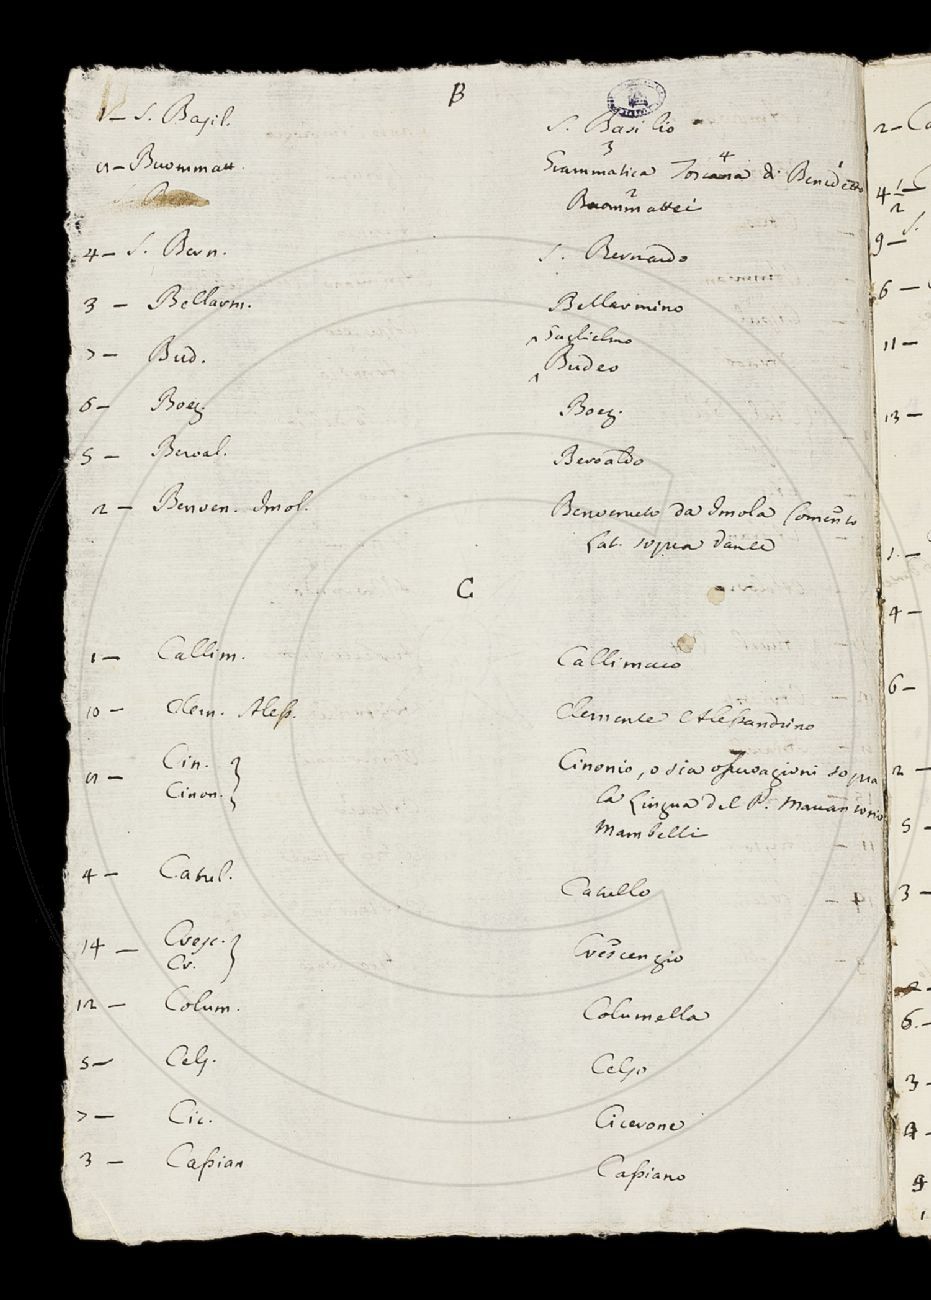 B
1 – S. Basil. S. Basilio
9 – Buommatt. Grammatica Toscana di Benedetto
3 4 1
Buommattei
2
4 – S. Bern. S. Bernardo
3 – Bellarm. Bellarmino
Guglielmo
7 – Bud. Budeo
6 – Boez. Boez.
5 – Beroal. Beroaldo
2 – Benven. Imol. Benvenuto da Imola Comento
Lat. sopra Dante
C
1 – Callim. Callimaco
10 – Clem. Aless. Clemente Alessandrino
9 – Cin. } Cinonio, o sia osservazioni sopra
Cinon. } la Lingua del P. Marcantonio
Mambelli
4 – Catul. Catullo
14 – Cresc. } Crescenzio
Cr. }
12 – Colum. Columella
5 – Cels. Celso
7 – Cic. Cicerone
3 – Cassian Cassiano